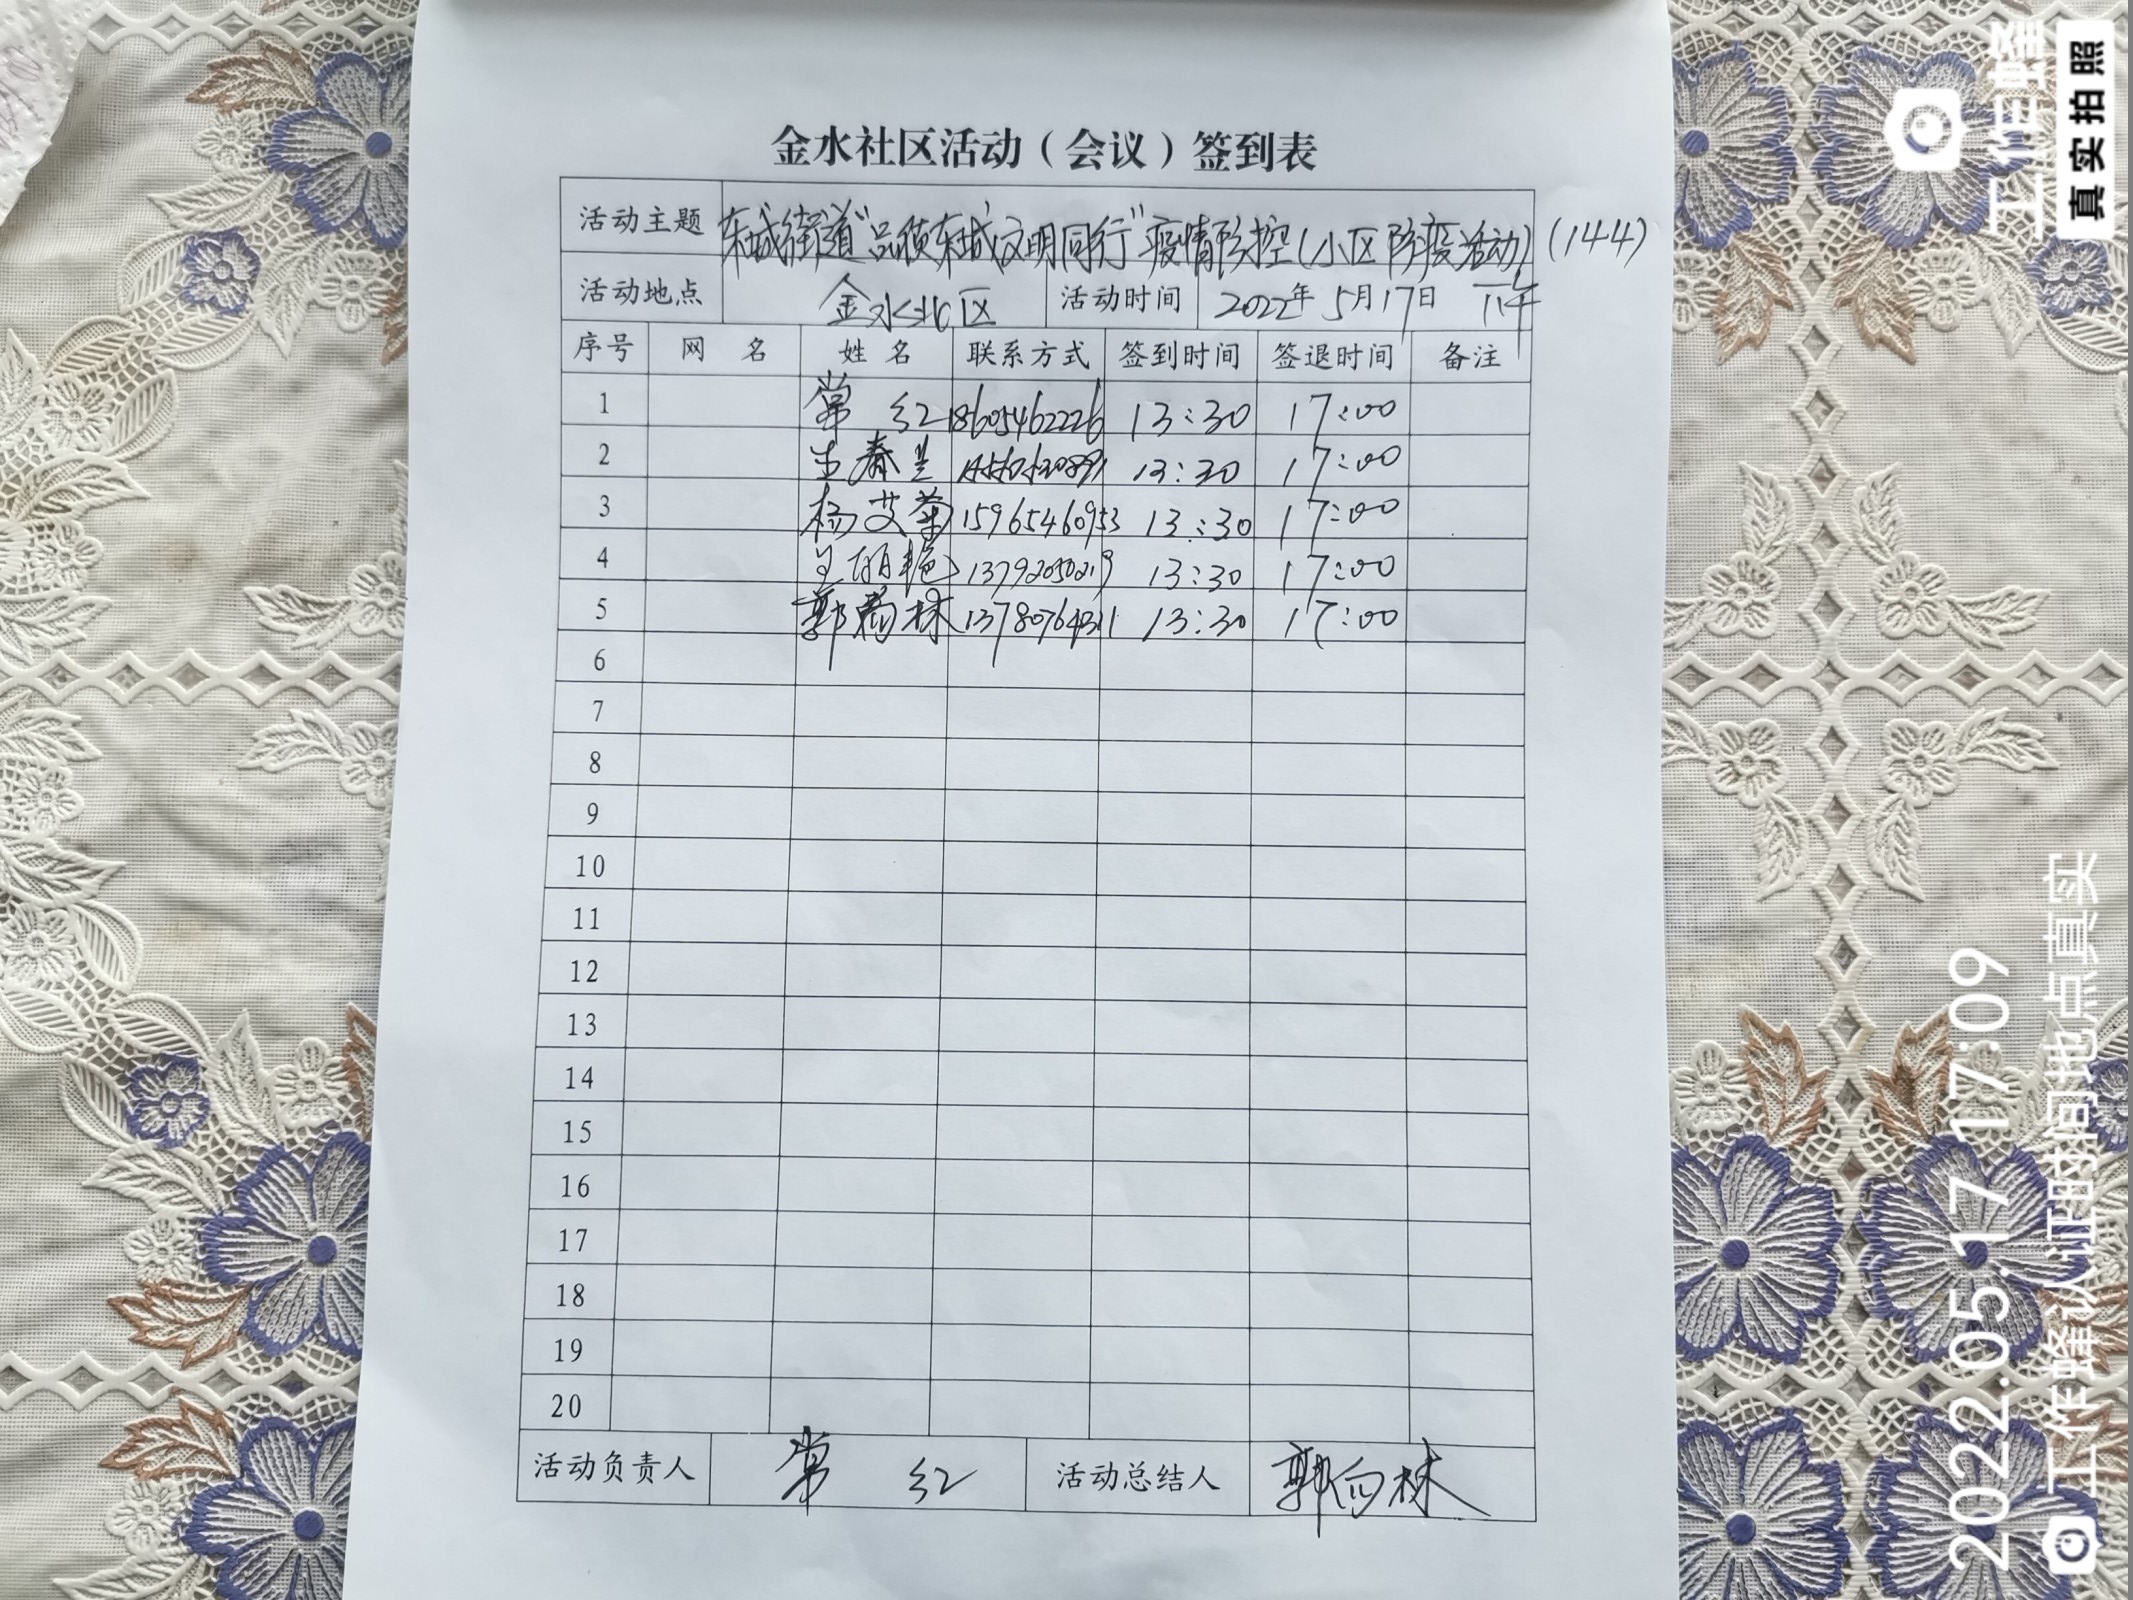 金水社区活动（会议）签到表
活动主题 东城街道“品质东城 文明同行”疫情防控(小区防疫活动)(144)
活动地点 金水北区 活动时间 2022年5月17日 下午
序号 网 名 姓 名 联系方式 签到时间 签退时间 备注
1 常 红 18605462226 13:30 17:00
2 春兰 13:30 17:00
3 杨艾菊 15965460953 13:30 17:00
4 王丽艳 13792050219 13:30 17:00
5 郭向林 13:30 17:00
6
7
8
9
10
11
12
13
14
15
16
17
18
19
20
活动负责人 常 红 活动总结人 郭向林
工作蜂
真实拍照
2022.05.17 17:09
工作蜂认证时间地点真实